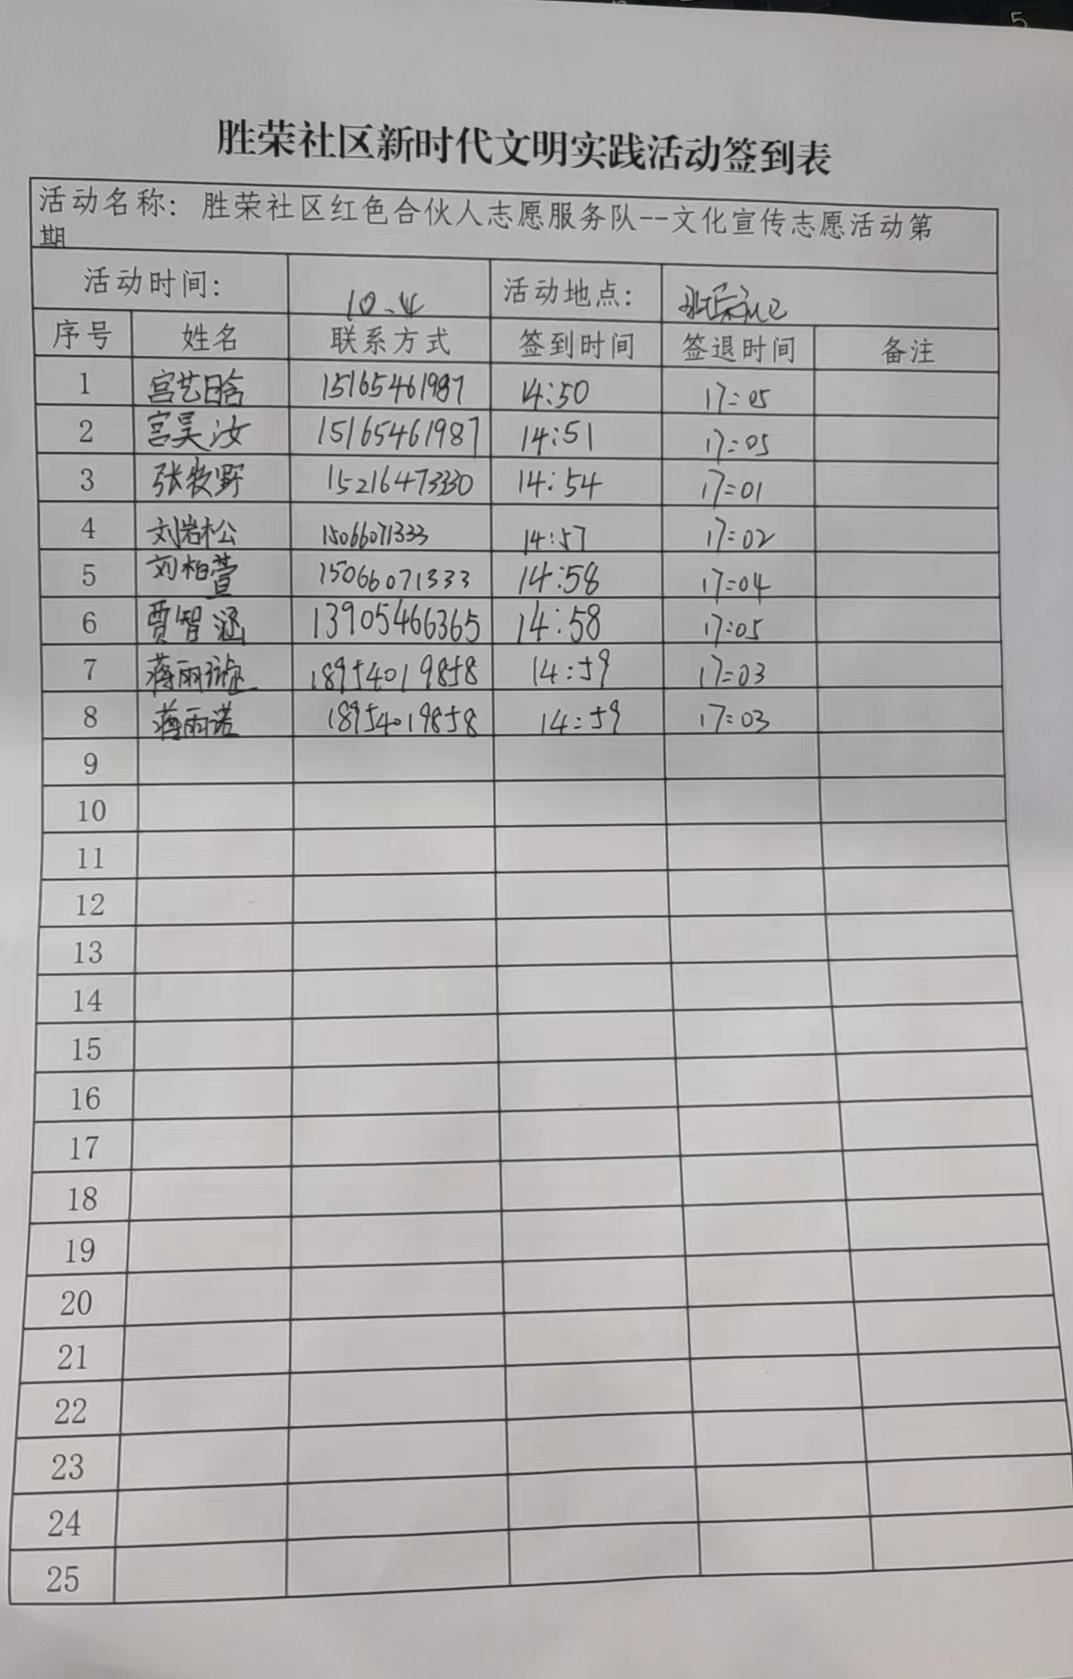 5
胜荣社区新时代文明实践活动签到表
活动名称：胜荣社区红色合伙人志愿服务队--文化宣传志愿活动第
期
活动时间： 10.4 活动地点： 胜荣社区
序号 姓名 联系方式 签到时间 签退时间 备注
1 宫艺晗 15165461987 14:50 17:05
2 宫昊汝 15165461987 14:51 17:05
3 张牧野 15216473330 14:54 17:01
4 刘岩松 15066071333 14:57 17:02
5 刘柏萱 15066071333 14:58 17:04
6 贾智涵 13905466365 14:58 17:05
7 蒋雨 18954019858 14:59 17:03
8 蒋雨诺 18954019858 14:59 17:03
9
10
11
12
13
14
15
16
17
18
19
20
21
22
23
24
25